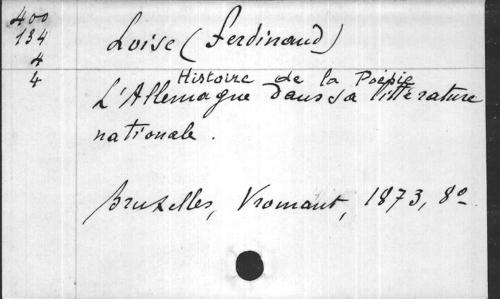 400
134
4
4
Loise (Ferdinand)
Histoire de la Poésie
L'Allemagne dans sa littérature
nationale.
Bruxelles, Vromant, 1873, 8º